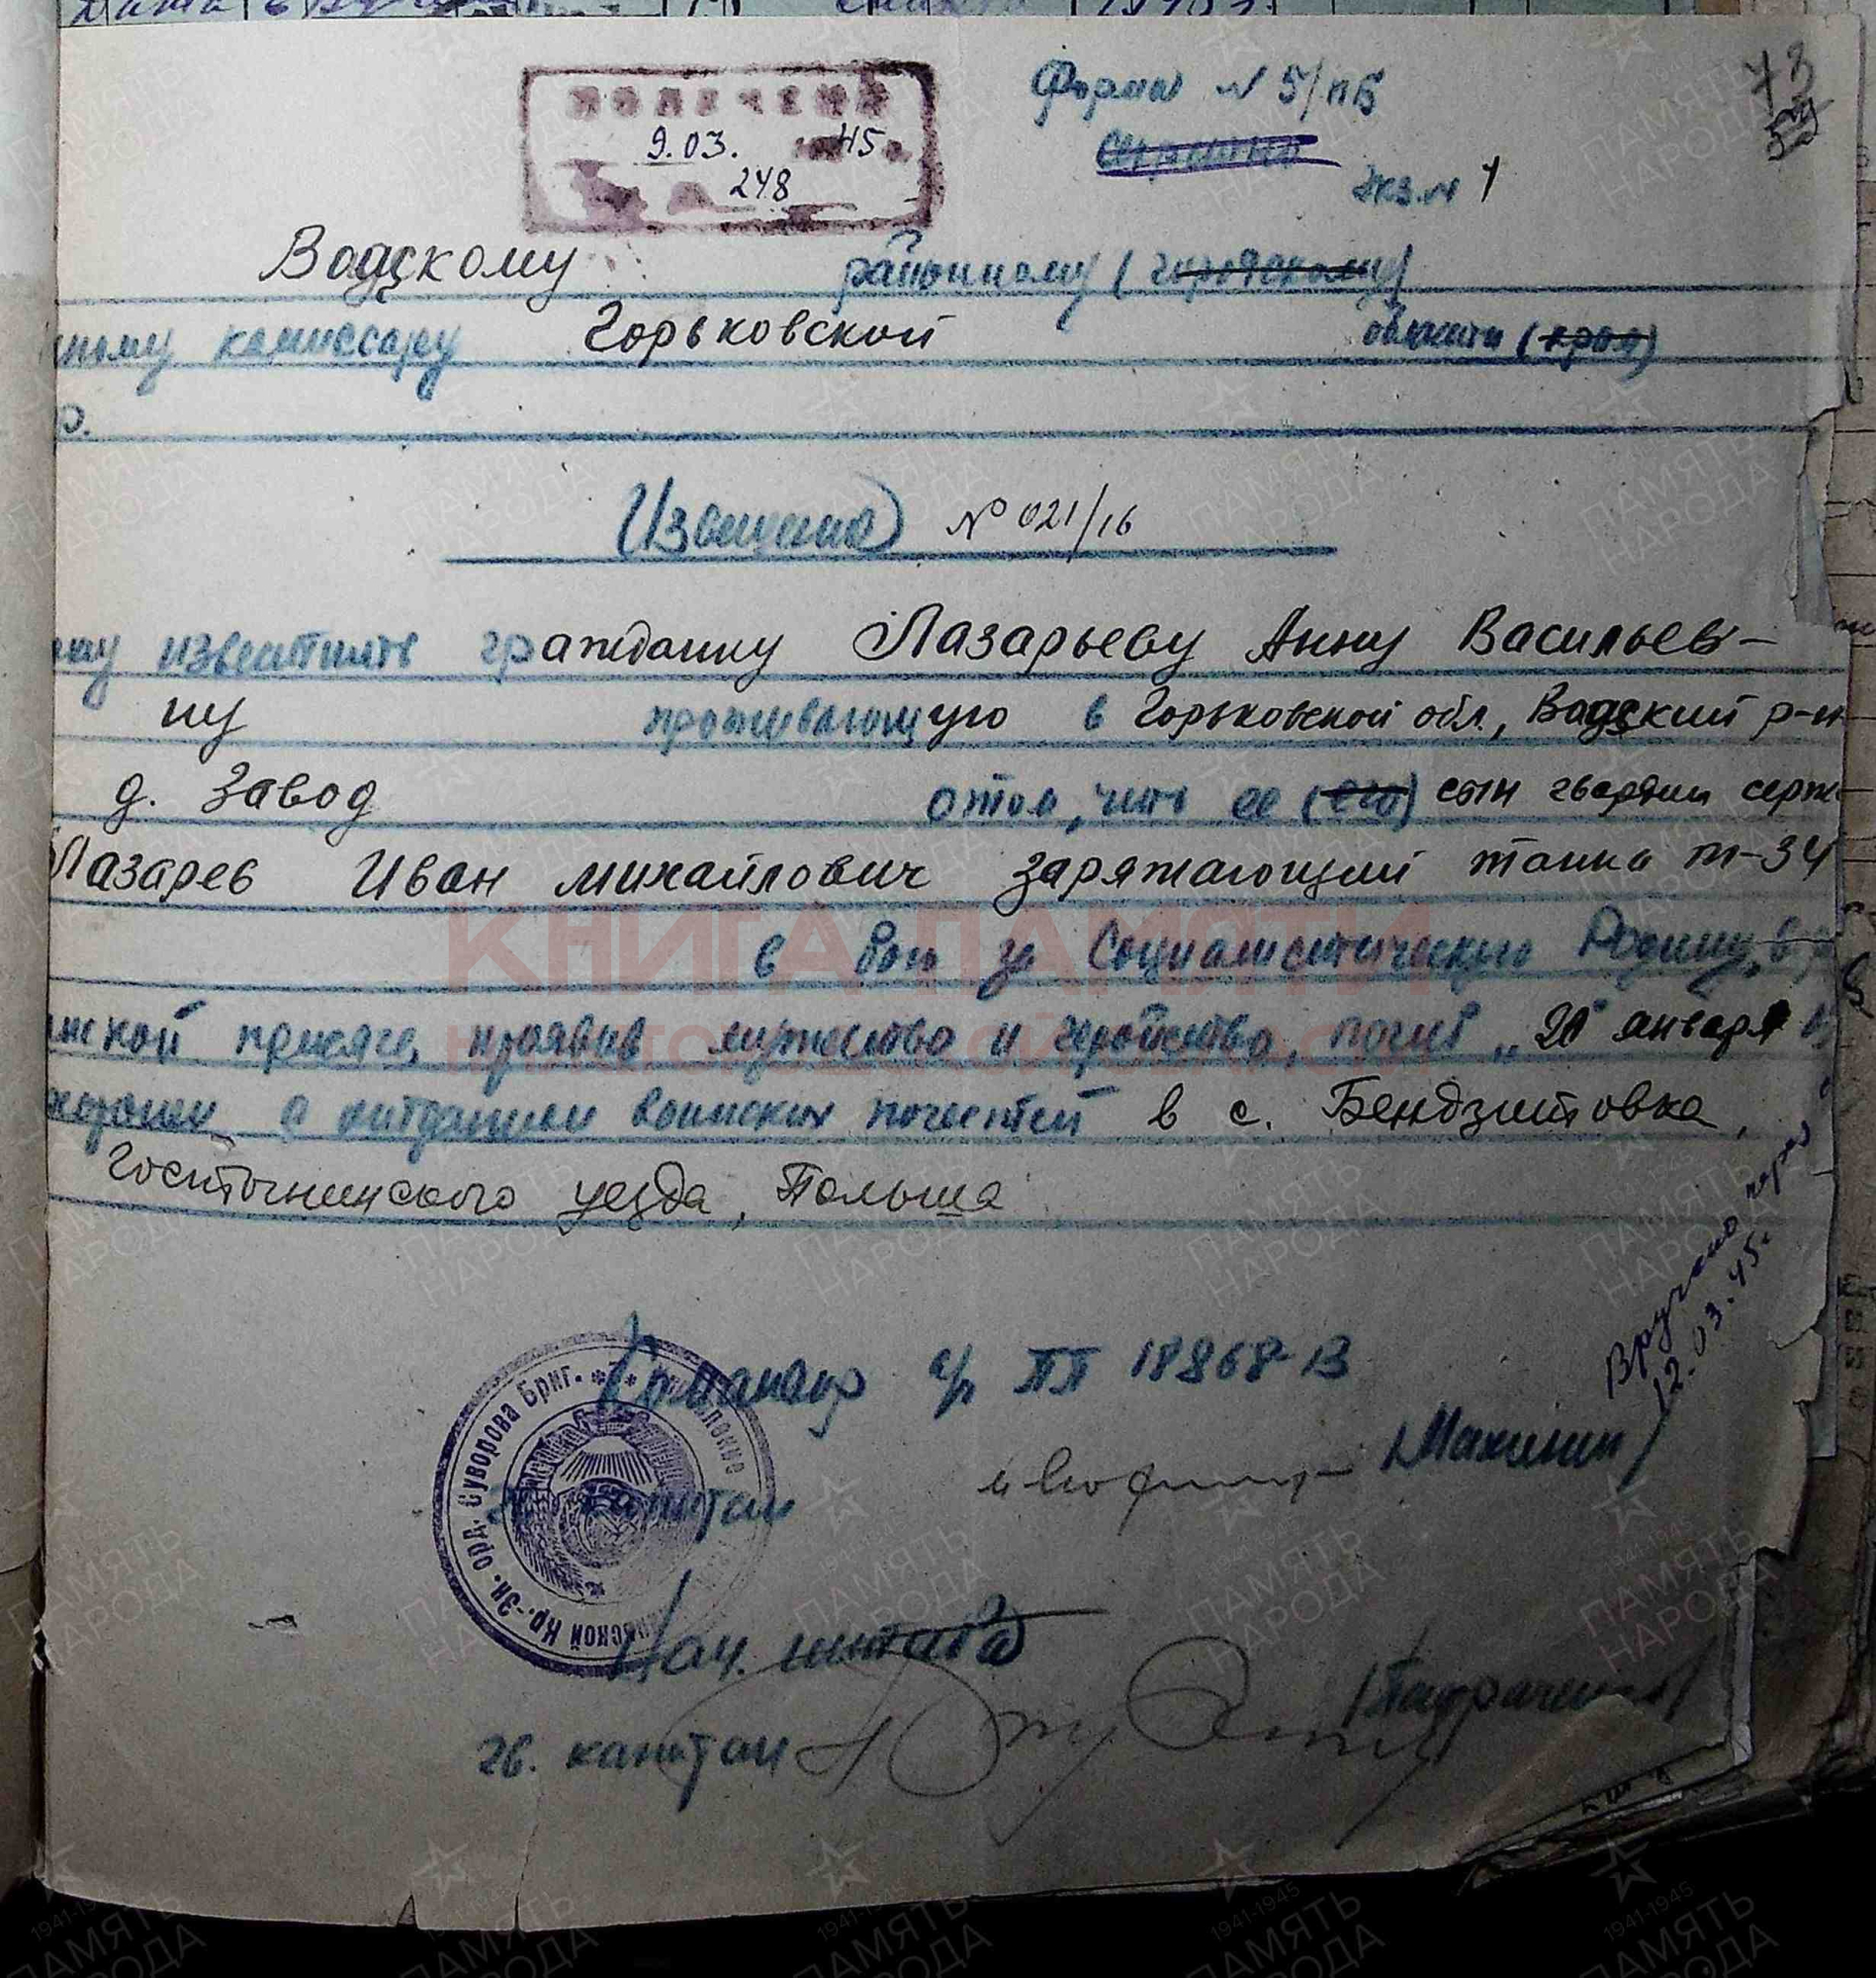 ПОЛУЧЕНО
9.03. 45
248
Форма № 5/пб
экз. № 1
73
Водскому районному (городскому)
ному комиссару Горьковской области (края)
р.
Извещение № 021/16
известить гражданку Лазарьеву Анну Васильев-
ну проживающую в Горьковской обл., Вадский р-н
д. Завод о том, что ее (его) сын гвардии серж
Лазарев Иван Михайлович заряжающий танка Т-34
в бою за Социалистическую Родину,
нской присяге, проявив мужество и геройство, погиб „20" января
с отданием воинских почестей в с. Бендзитовка,
Гостынинского уезда, Польша
Вручено
12.03.45г
Командир в/ч ПП 18868-В
гв. капитан (Махинин)
Суворова Бриг.
Кр.-Зн. орд.
Нач. штаба
гв. капитан
КНИГА ПАМЯТИ
ПАМЯТЬ НАРОДА
1941-1945